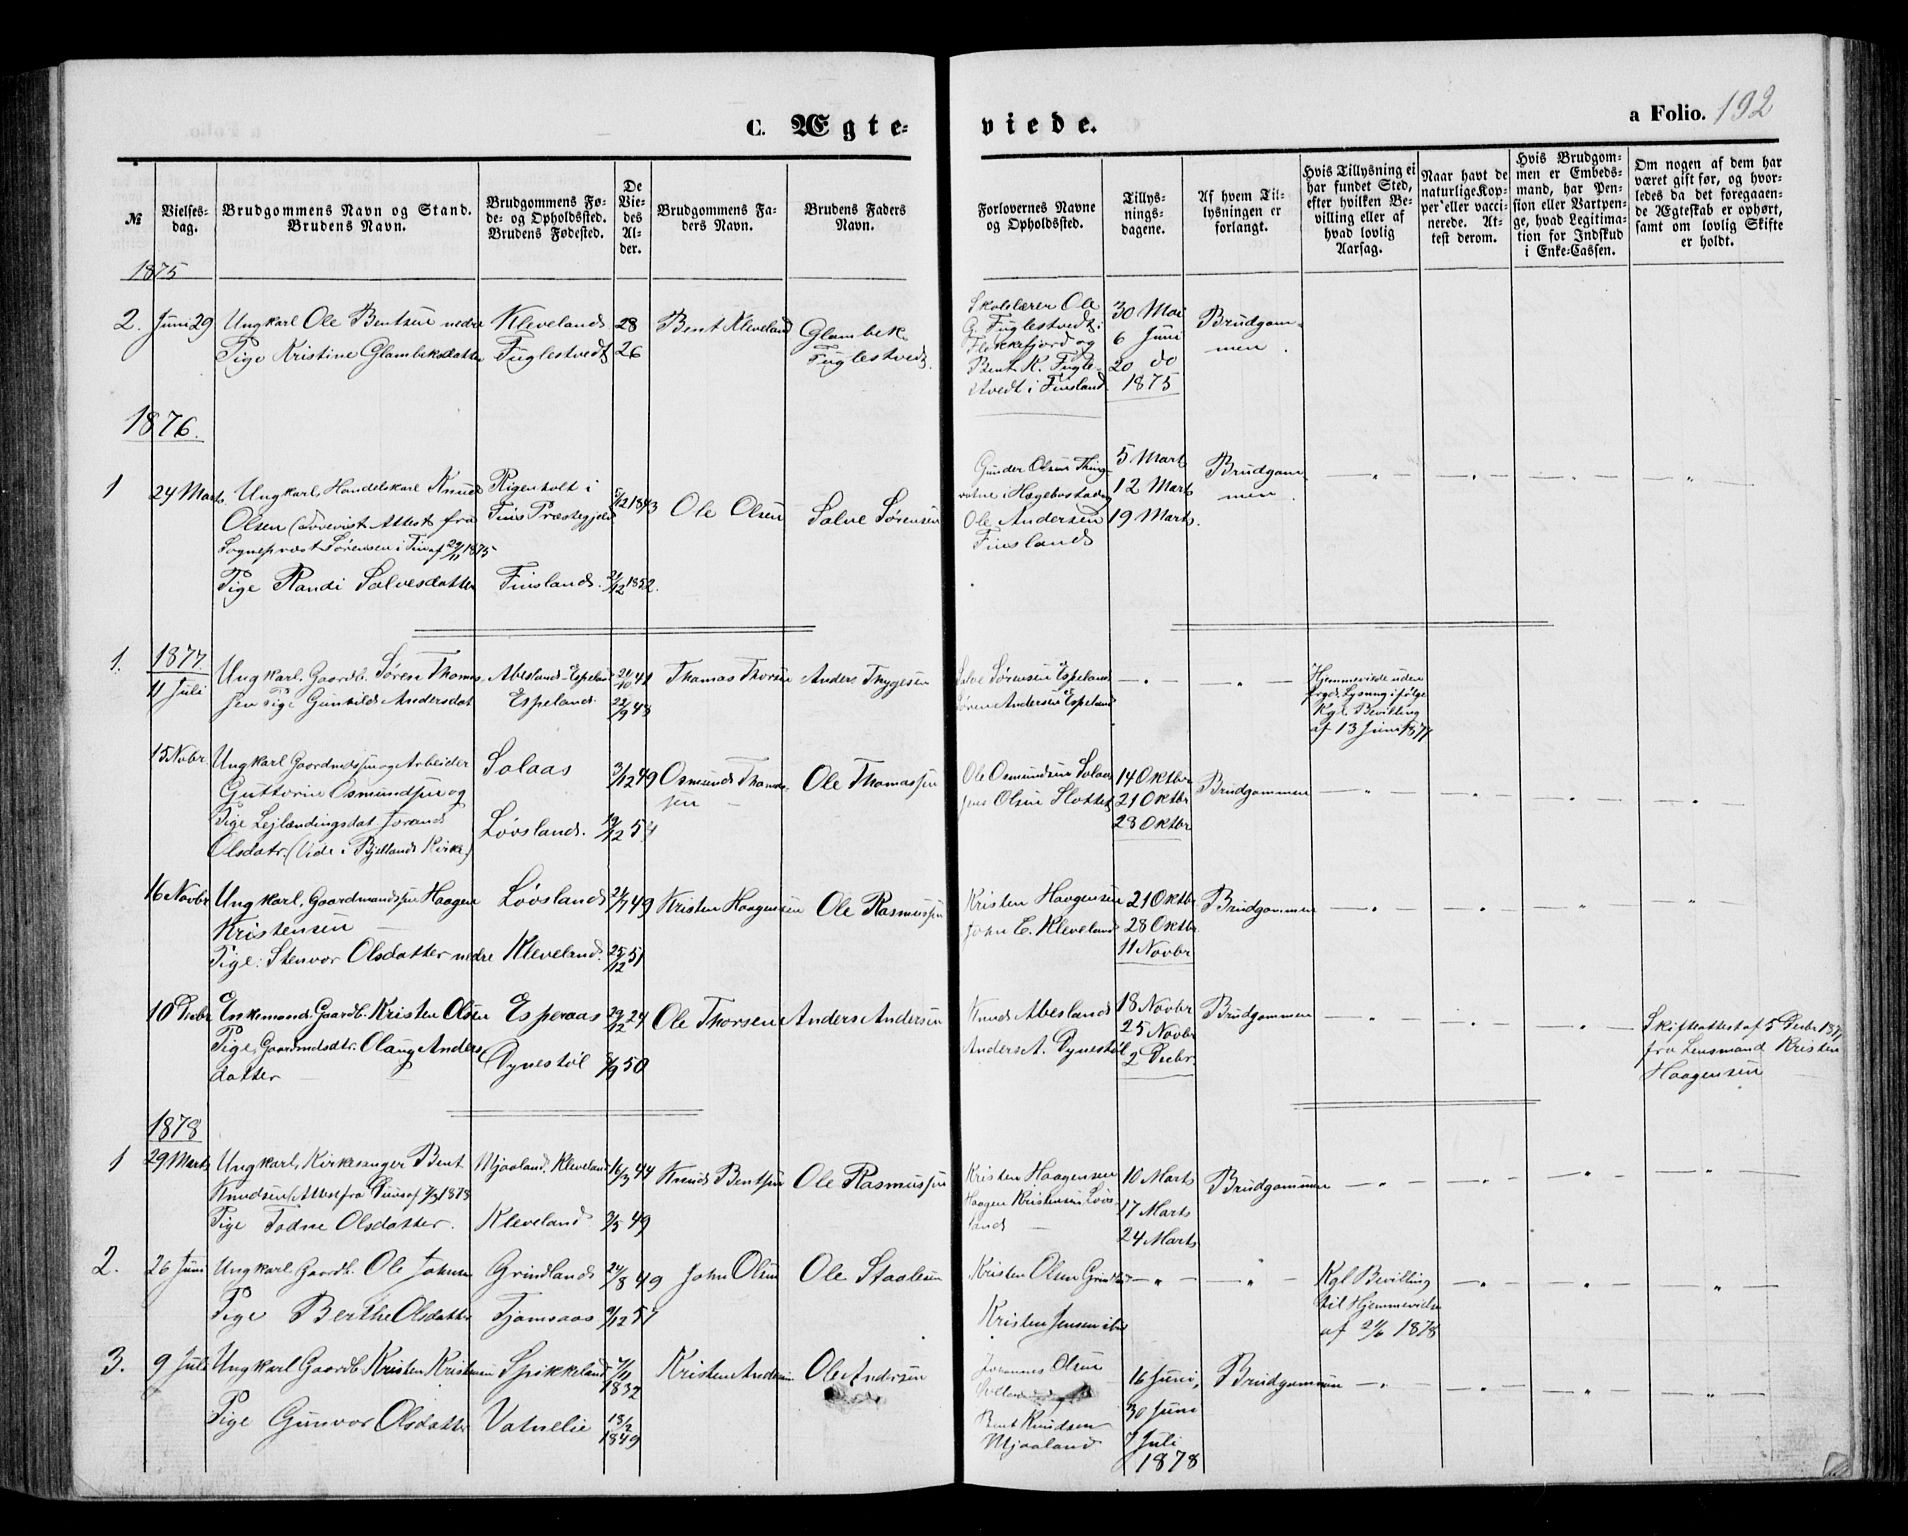 C. Ægte-
viede.
a Folio. 192
№
Vielses-
dag.
Brudgommens Navn og Stand.
Brudens Navn.
Brudgommens Fø-
de- og Opholdssted.
Brudens Fødested.
De
Vie-
des
Al-
der.
Brudgommens Fa-
ders Navn.
Brudens Faders
Navn.
Forlovernes Navne
og Opholdssted.
Tillys-
nings-
dagene.
Af hvem Til-
lysningen er
forlangt.
Hvis Tillysning ei
har fundet Sted,
efter hvilken Be-
villing eller af
hvad lovlig
Aarsag.
Naar havt de
naturlige Kop-
per eller vacci-
nerede. At-
test derom.
Hvis Brudgom-
men er Embeds-
mand, har Pen-
sion eller Vartpen-
ge, hvad Legitima-
tion for Indskud
i Enke-Cassen.
Om nogen af dem har
været gift før, og hvor-
ledes da det foregaaen-
de Ægteskab er ophørt,
samt om lovlig Skifte
er holdt.
1875
2. Juni 29 Ungkarl Ole Bentsen nedre Kleveland 28 Bent Kleveland Glambek
Fuglestvedt
Pige Kristine Glambeksdatter Fuglestvedt 26
Skolelærer Ole
G. Fuglestvedt i
Flekkefjord og
Bent K. Fugle-
stvedt i Finsland
30 Mai
6 Juni
20 do
1875
Brudgom-
men.
1876.
1 24 Marts Ungkarl, Handelskarl Knud
Olsen (Attest fra
Sogneprest Sørensen i Tins af 29/11 1875
Rigenholt i
Tins Præstegjeld
1843 Ole Olsen Salve Sørensen
Pige Randi Salvesdatter Finsland. 21/12 1852.
Gunder Olsen Ting-
vatne i Hægebostad og
Ole Andersen
Finsland
5 Marts
12 Marts
19 Marts.
Brudgom
men.
1877.
1. 11 Juli Ungkarl. Gaardb. Søren Thomas-
sen Pige Gunhild Andersdat
Abesland-Espeland
Espeland.
21/10 41
22/9 48
Thomas Thorsen Anders Thygesen
Salve Sørensen Espeland
Søren Andersen Espeland
Hjemmeviede uden
Lysning i følge
Kgl. Bevilling
af 13 Juni 1877
15 Novbr. Ungkarl Gaardmdssøn og Arbeider
Guttorm Osmundsen og
Pige Leilændingsdat. Torand
Olsdatr. (Vide i Bjellands Kirke)
Solaas
Løvsland.
3/12 49
19/12 54
Osmund Thomas-
sen
Ole Thomassen
Ole Osmundsen Solaas
Jens Olsen Slottet
14 Oktbr
21 Oktbr
28 Oktbr
Brudgommen
16 Novbr Ungkarl, Gaardmandssøn Haagen
Kristensen
Pige: Stenvor Olsdatter nedre
Løvsland
Kleveland.
24/7 49
25/12 51
Kristen Haagensen Ole Rasmussen
Kristen Haagensen
John E. Kleveland
21 Oktbr
28 Oktbr
11 Novbr
Brudgommen
10 Decbr Enkemand. Gaardb. Kristen Olsen
Pige. Gaardmdsdtr. Olaug Anders
datter
Esperaas
Dynestøl
29/12 24
8/9 50
Ole Thorsen Anders Andersen
Knud Abesland
Anders A. Dynestøl
18 Novbr
25 Novbr
2 Decbr.
Brudgommen
Skifteattest af 5 Decbr 1877
fra Lensmand Kristen
Haagensen
1878
1 29 Marts Ungkarl, Kirkesanger Bent
Knudsen (Attest fra 1878
Pige Todne Olsdatter.
Mjaaland. Kleveland
Kleveland
16/3 44
3/5 49
Knud Bentsen Ole Rasmussen
Kristen Haagensen
Haagen Kristensen Løvs-
land
10 Marts
17 Marts
24 Marts
Brudgommen
2. 26 Juni Ungkarl Gaardb. Ole Johnsen
Pige Berthe Olsdatter
Grindland
Tjomsaas
24/8 49
9/12 51
John Olsen Ole Staalesen
Kristen Olsen Grindland
Kristen Jensen ibd
Kgl Bevilling
til Hjemmevielse
af 21/6 1878
3. 9 Juli Ungkarl Gaardb. Kristen Kristensen
Pige Gunvor Olsdatter
Spikkeland
Vatnelie
7/11
1832
18/2
1849
Kristen Andersen Ole Andersen
Johannes Olsen
Bent Knudsen
Mjaaland
16 Juni,
30 Juni
7 Juli
1878
Brudgommen